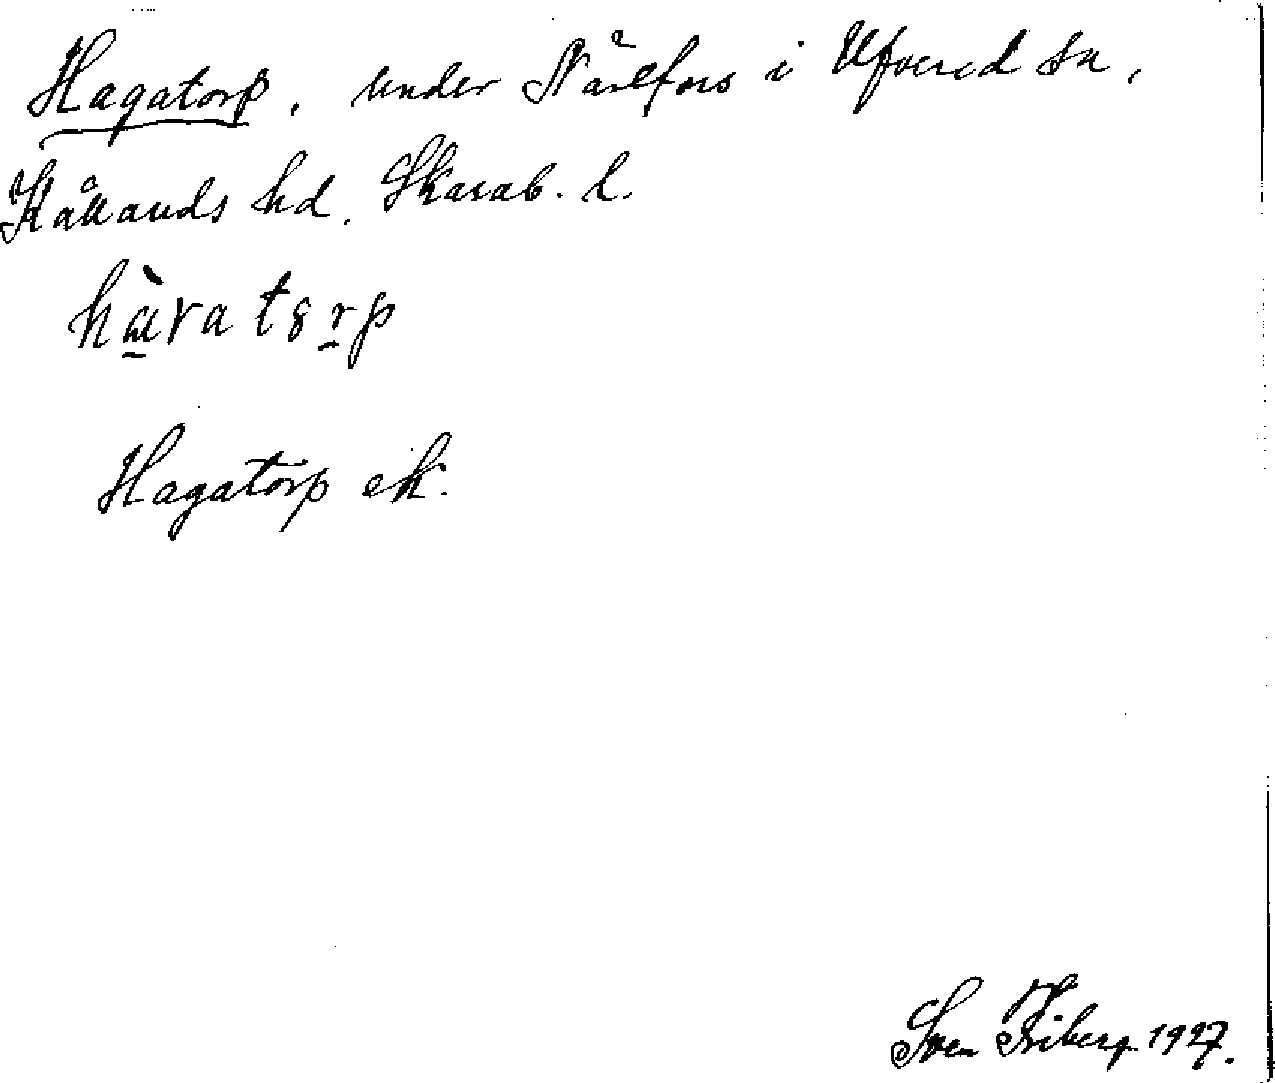 Hagatorp, under Nårlfors i Ufvered sn,
Kållands hd. Skarab. l.
hàvatorp
Hagatorp ek.
Sven Friberg 1927.